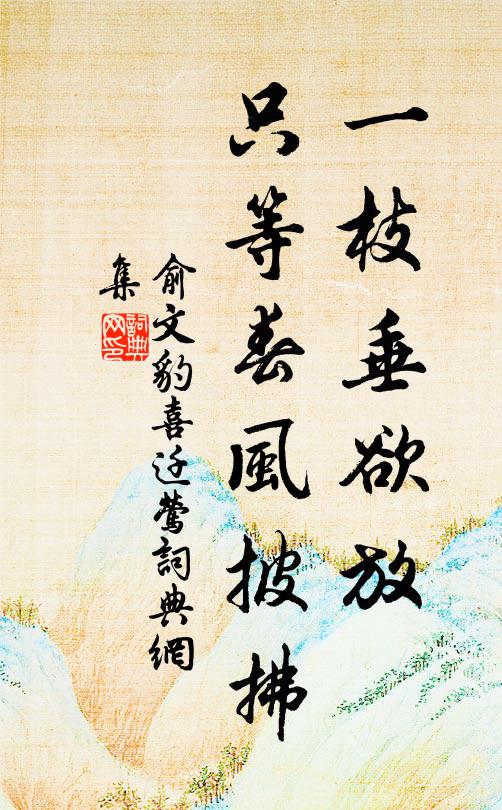 一枝垂欲放
只等春風披拂
俞文豹喜迁鶯詞典網
集
詞典
网印